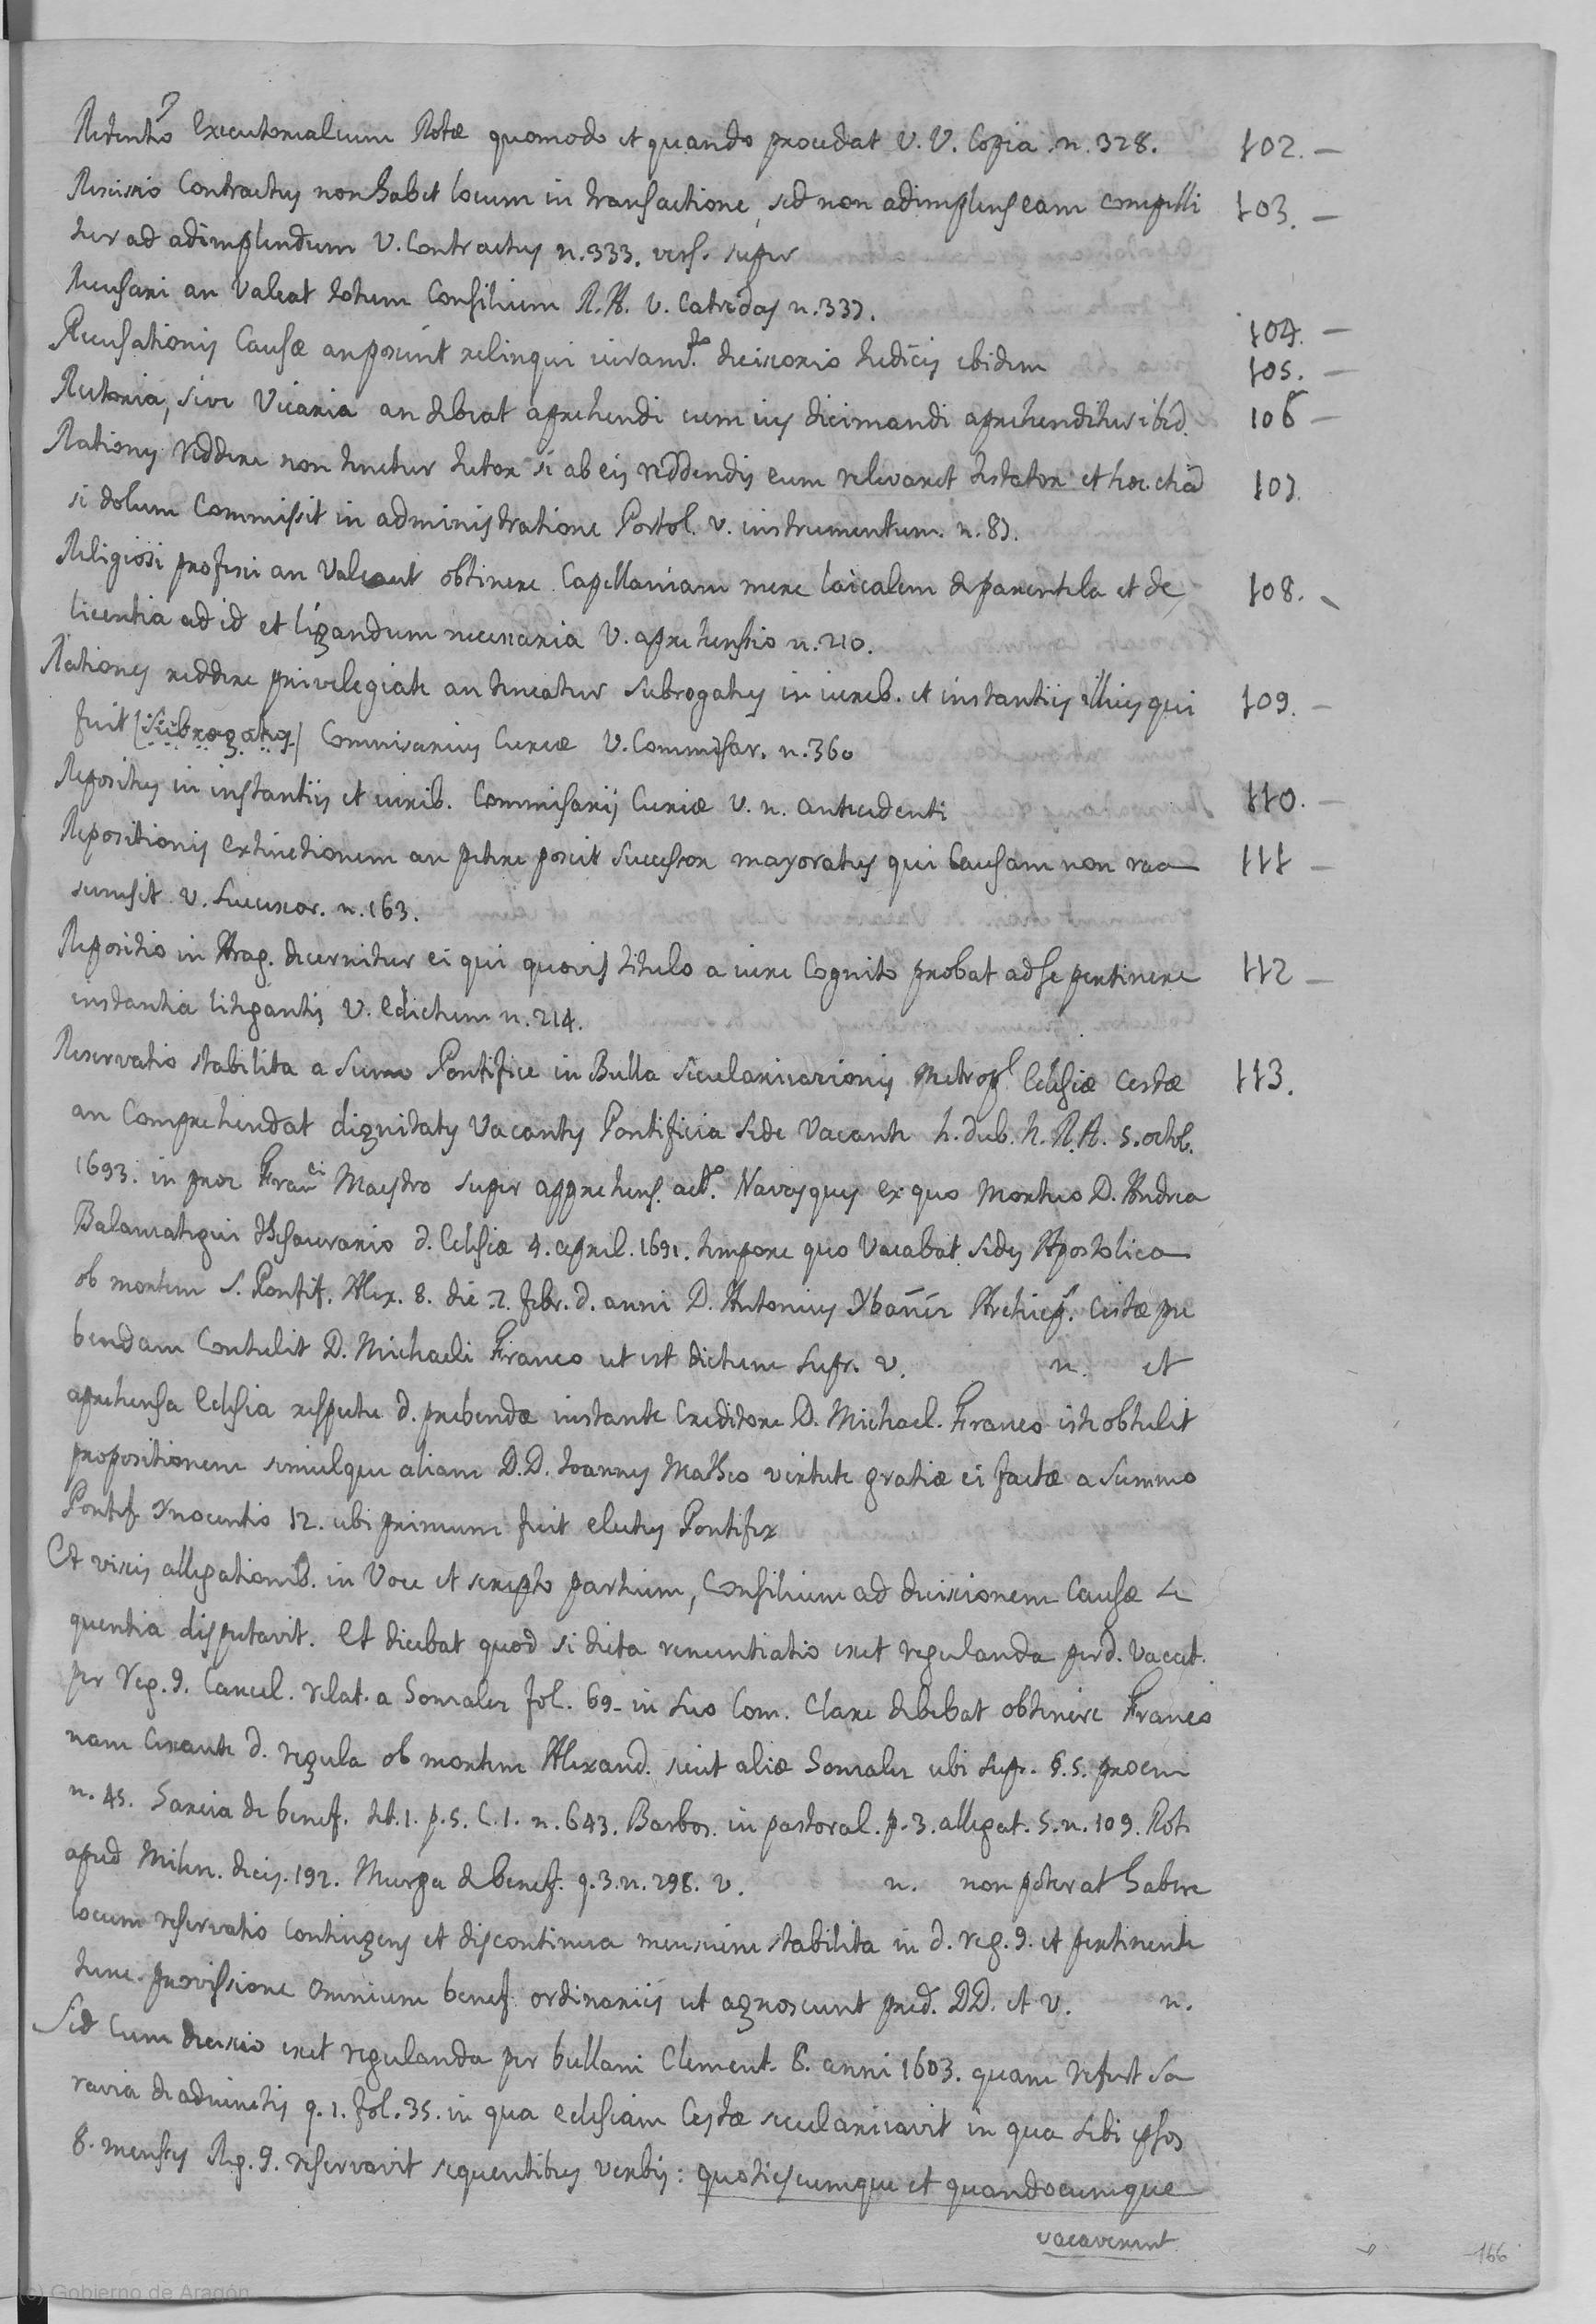 Retentio Executorialium Rotæ quomodo et quando procedat V. V. Copia n. 328. 102. —
Resissio Contractus non habet locum in transactione, sed non adimplens eam compelli 103. —
tur ad adimplendum V. Contractus n. 333. vers. super
Recusari an Valeat totum Consilium R. A. V. Catredas n. 337. 104. —
Recusationis Causæ an possint relinqui iuram.to decissorio Iudicis ibidem 105. —
Rectoria, sive Vicaria an debeat aprehendi cum ius decimandi aprehenditur ibid. 106 —
Rationes reddere non tenetur tutor si ab eis reddendis eum relevaret testator et hoc etiã 107.
si dolum Commissit in administratione Portol. v. instrumentum. n. 87.
Religiosi professi an Valeant obtinere Capellaniam mere laicalem de parentela et de 108.
licentia ad id et ligandum necessaria V. aprehensio n. 210.
Rationes reddere privilegiate an teneatur subrogatus in iurib. et instantiis illius qui 109. —
fuit [subrogatus] Commissarius Curiæ V. Commissar. n. 360
Repositus in instantiis et iurib. Commissarij Curiæ V. n. antecedenti 110. —
Repositionis extinctionem an petere possit Successor mayoratus qui Causam non rea 111 —
sumsit v. Successor. n. 163.
Repositio in Arag. decernitur ei qui quovis titulo a iure Cognito probat ad se pertinere 112 —
instantia litigantis V. edictum n. 214.
Reservatio stabilita a Sumo Pontifice in Bulla secularizazionis Metrop.l Eclesiæ Cestæ 113.
an Comprehendat dignitates Vacantes Pontificia Sede Vacante h. dub. h. R. A. 5. octob.
1693. in proc Franci Maestro super apprehens. act. Navasques ex quo Mortuo D. Andrea
thesaurario d. Eclesiæ 4. april. 1691. tempore quo Vacabat Sedes Apostolica
ob mortem S. Pontif. Alex. 8. die 2. febr. d. anni D. Antonius Ybañez Archiep. Cestæ pre
bendam Contulit D. Michaeli Franco ut est dictum supr. v. n. et
aprehensa Eclesia respectu d. prebendæ instante Creditore D. Michael. Franco iste obtulit
propositionem simulque aliam D. D. Joannes Matheo virtute gratiæ ei factæ a Summo
Pontif. Ynocentio 12. ubi primum fuit electus Pontifex
Et visis allegationib. in Voce et scripto partium, Consilium ad decissionem Causæ se
quentia disputavit. Et dicebat quod si dicta renuntiatio esset regulanda per d. Vacat.
per Reg. 9. Cancel. relat. a Gonzalez fol. 69. in suo Com. Clare debebat obtinere Franco
nam cessante d. regula ob mortem Alexand. sicut aliæ Gonzalez ubi supr. §. 5. proem
n. 45. Garcia de benef. tit. 1. p. 5. C. 1. n. 643. Barbos. in pastoral. p. 3. allegat. 5. n. 109. Rot.
apud decis. 192. Murga de benef. q. 3. n. 298. v. n. non poterat habere
locum reservatio contingens et discontinua mensium stabilita in d. reg. 9. et pertinente
tunc provissione omnium benef. ordinariis ut agnoscunt pred. DD. et v. n.
Sed Cum decissio esset regulanda per bullam Clement. 8. anni 1603. quam refert Sa
ravia de adiunctis q. 1. fol. 35. in qua eclesiam Cestæ secularizavit in qua sibi ipsos
8. menses Reg. 9. reservavit sequentibus verbis: quotiescumque et quandocumque
vacaverint
166
(c) Gobierno de Aragón